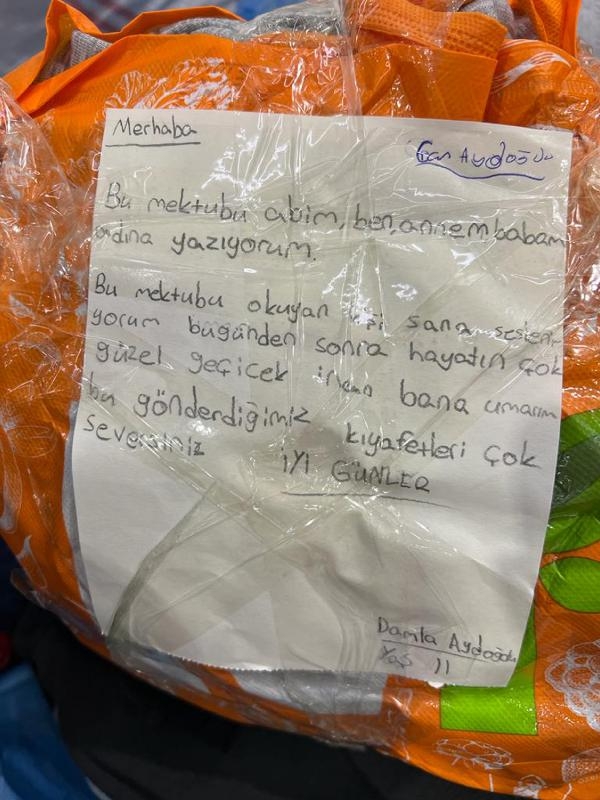 Merhaba
Aydoğdu
Bu mektubu abim, ben, annem babam
adına yazıyorum.
Bu mektubu okuyan kişi sana seslen-
yorum bugünden sonra hayatın çok
güzel geçicek inan bana umarım
bu gönderdiğimiz kıyafetleri çok
severs­iniz
iYi GÜNLER
Damla Aydoğdu
Yaş 11